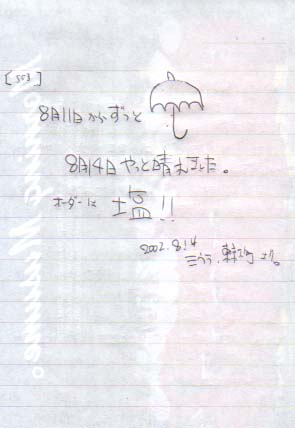 [553]
8月11日からずっと
8月14日やっと晴れました。
オーダーは 塩!!
2002.8.14
ミウラ.